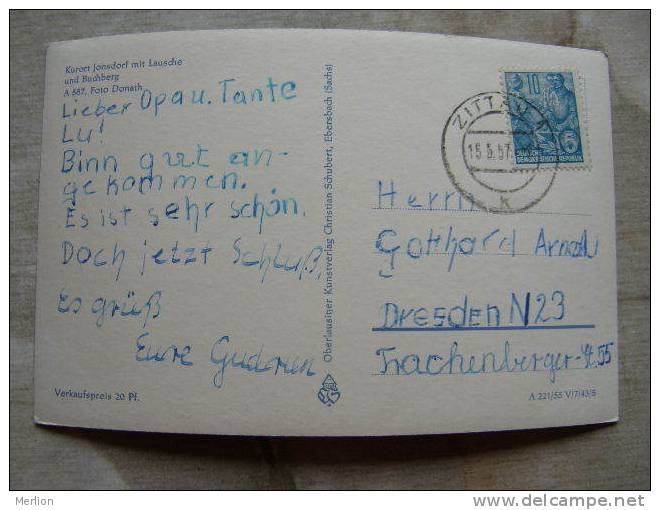 Kurort Jonsdorf mit Lausche
und Buchberg
A 687, Foto Donath
Lieber Opa u. Tante
Lu!
Binn gut an-
gekommen.
Es ist sehr schön.
Doch jetzt Schluß,
Es grüß
Eure
Verkaufspreis 20 Pf.
Oberlausitzer Kunstverlag Christian Schubert, Ebersbach (Sachs)
10
6
DEUTSCHE
DEMOKRATISCHE REPUBLIK
ZITTAU
15.5.57
k
Herrn
Gotthard
Dresden N23
Trachenberger-St. 55
A 221/55 V/7/43/5
Merlion
http://www.delcampe.net